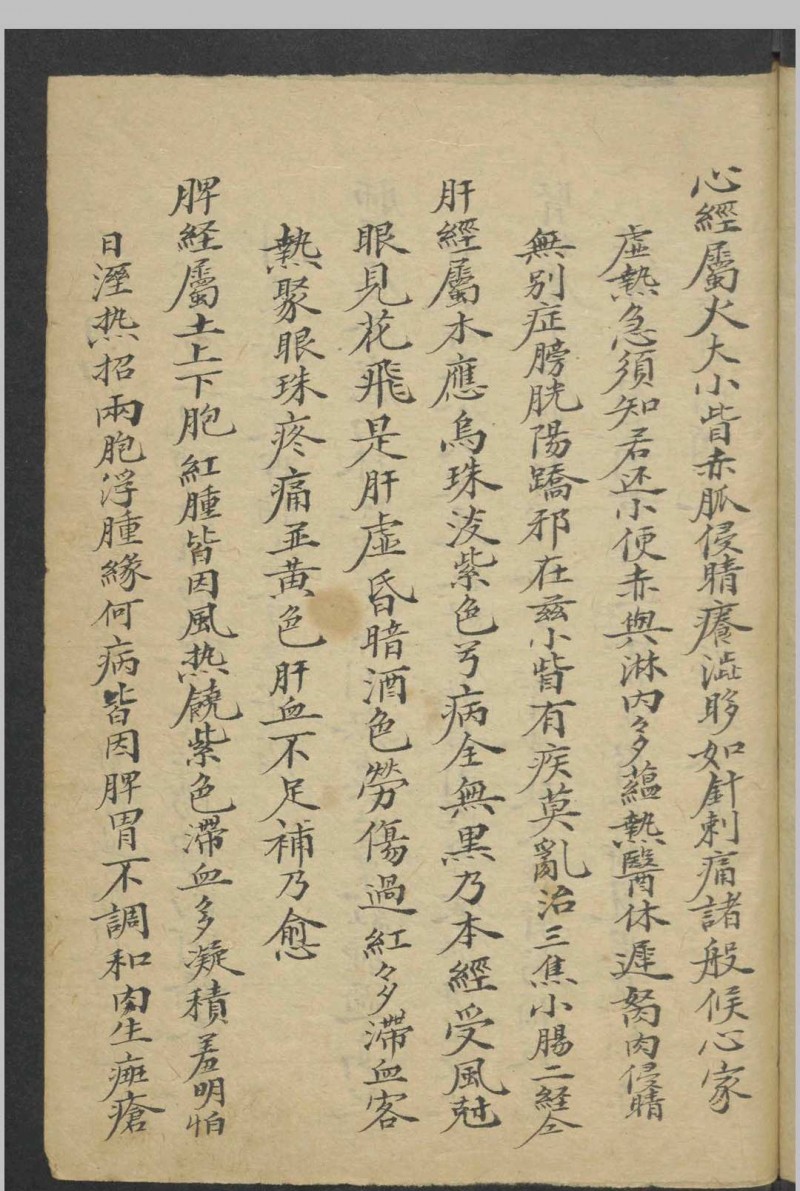 心經屬火大小眥赤脈侵睛癢澁眵如針刺痛諸般候心家
虛熱急須知若还小便赤與淋内多蘊熱醫休遲胬肉侵睛
無别症膀胱陽蹻邪在兹小眥有疾莫亂治三焦小腸二經今
肝經屬木應烏珠淡紫色兮病全無黒乃本經受風尅
眼見花飛是肝虛昏暗酒色勞傷過紅多滯血客
熱聚眼珠疼痛並黄色肝血不足補乃愈
脾経屬土上下胞紅腫皆因風热饒紫色滯血多凝積羞明怕
日溼热招兩胞浮腫緣何病皆因脾胃不調和肉生瘢瘡